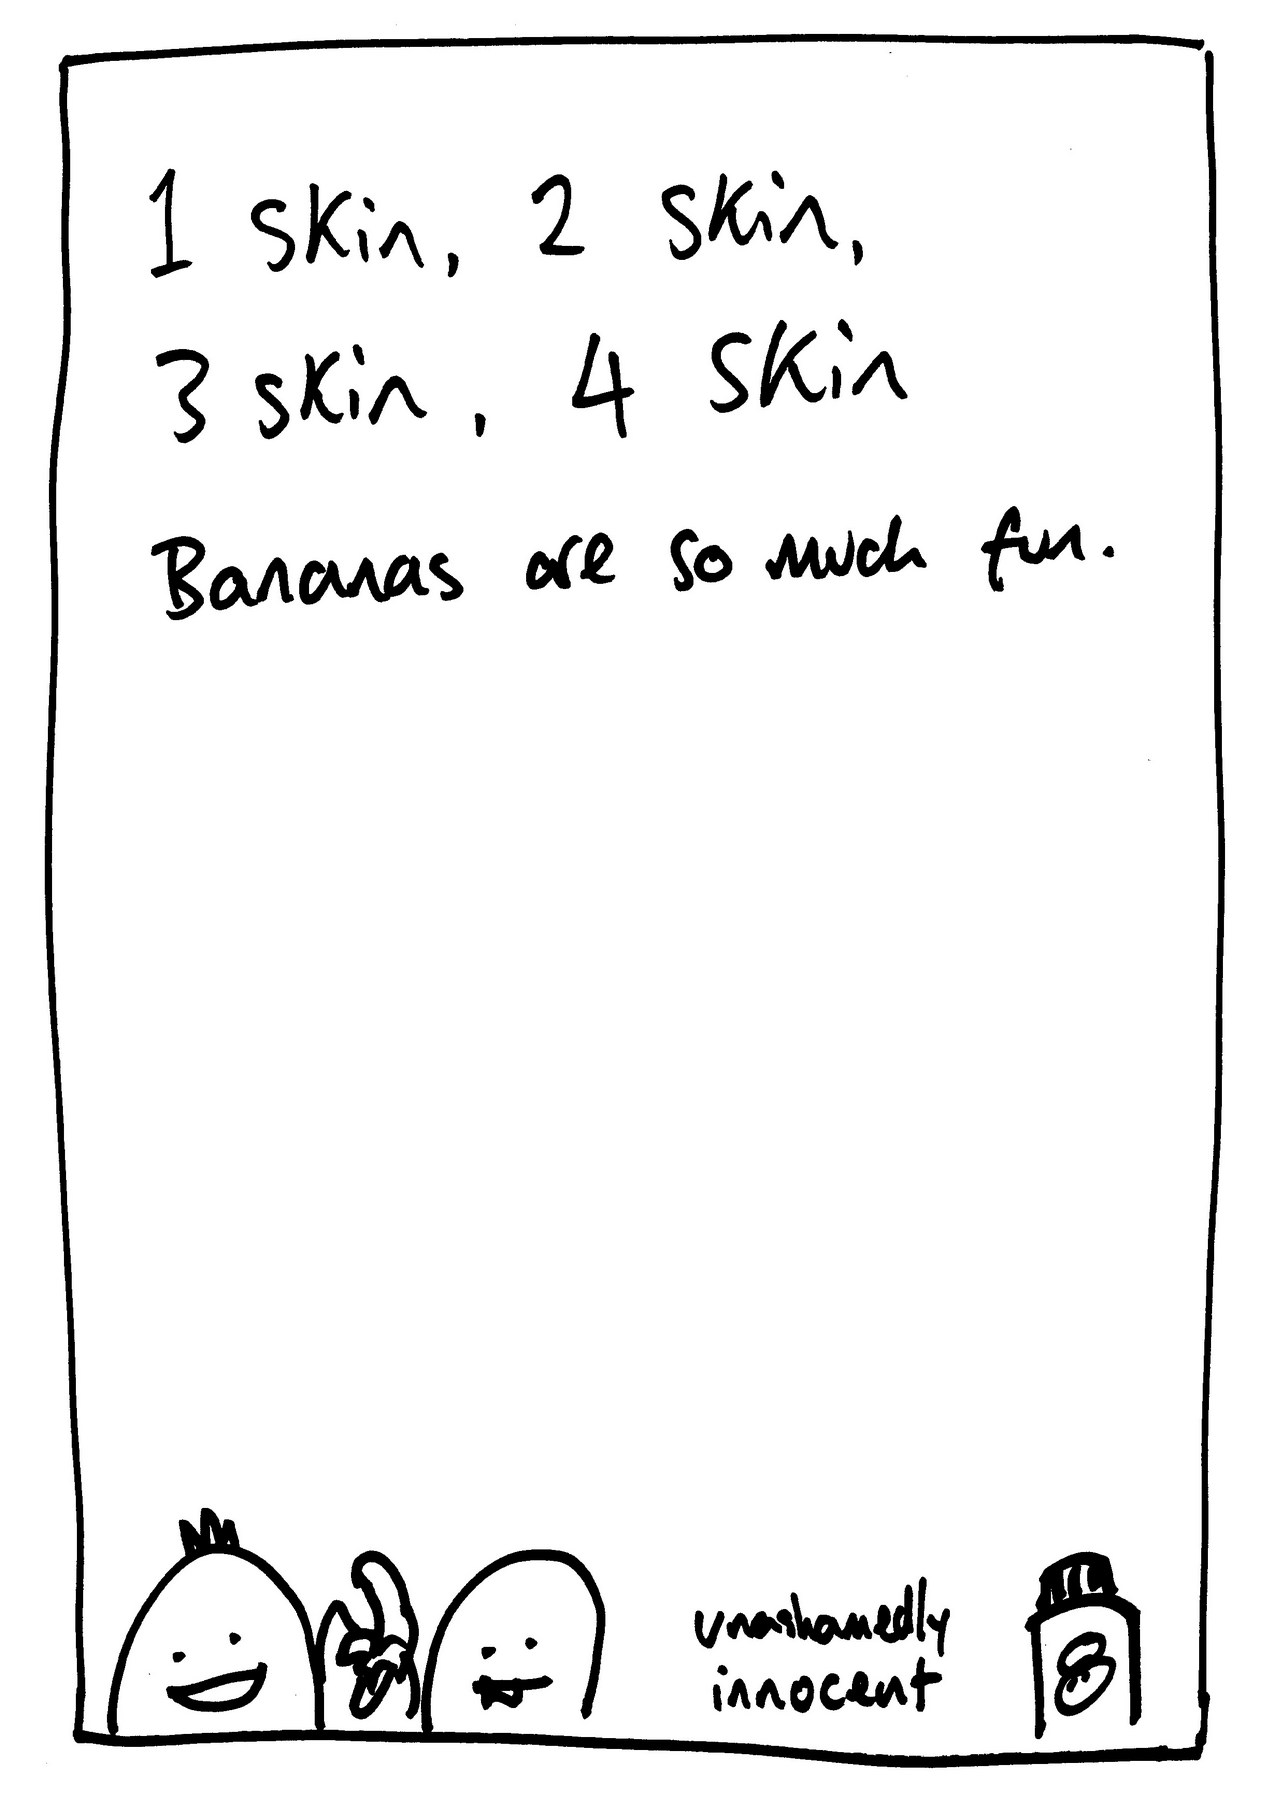 1 skin, 2 skin,
3 skin, 4 skin
Bananas are so much fun.
unashamedly
innocent